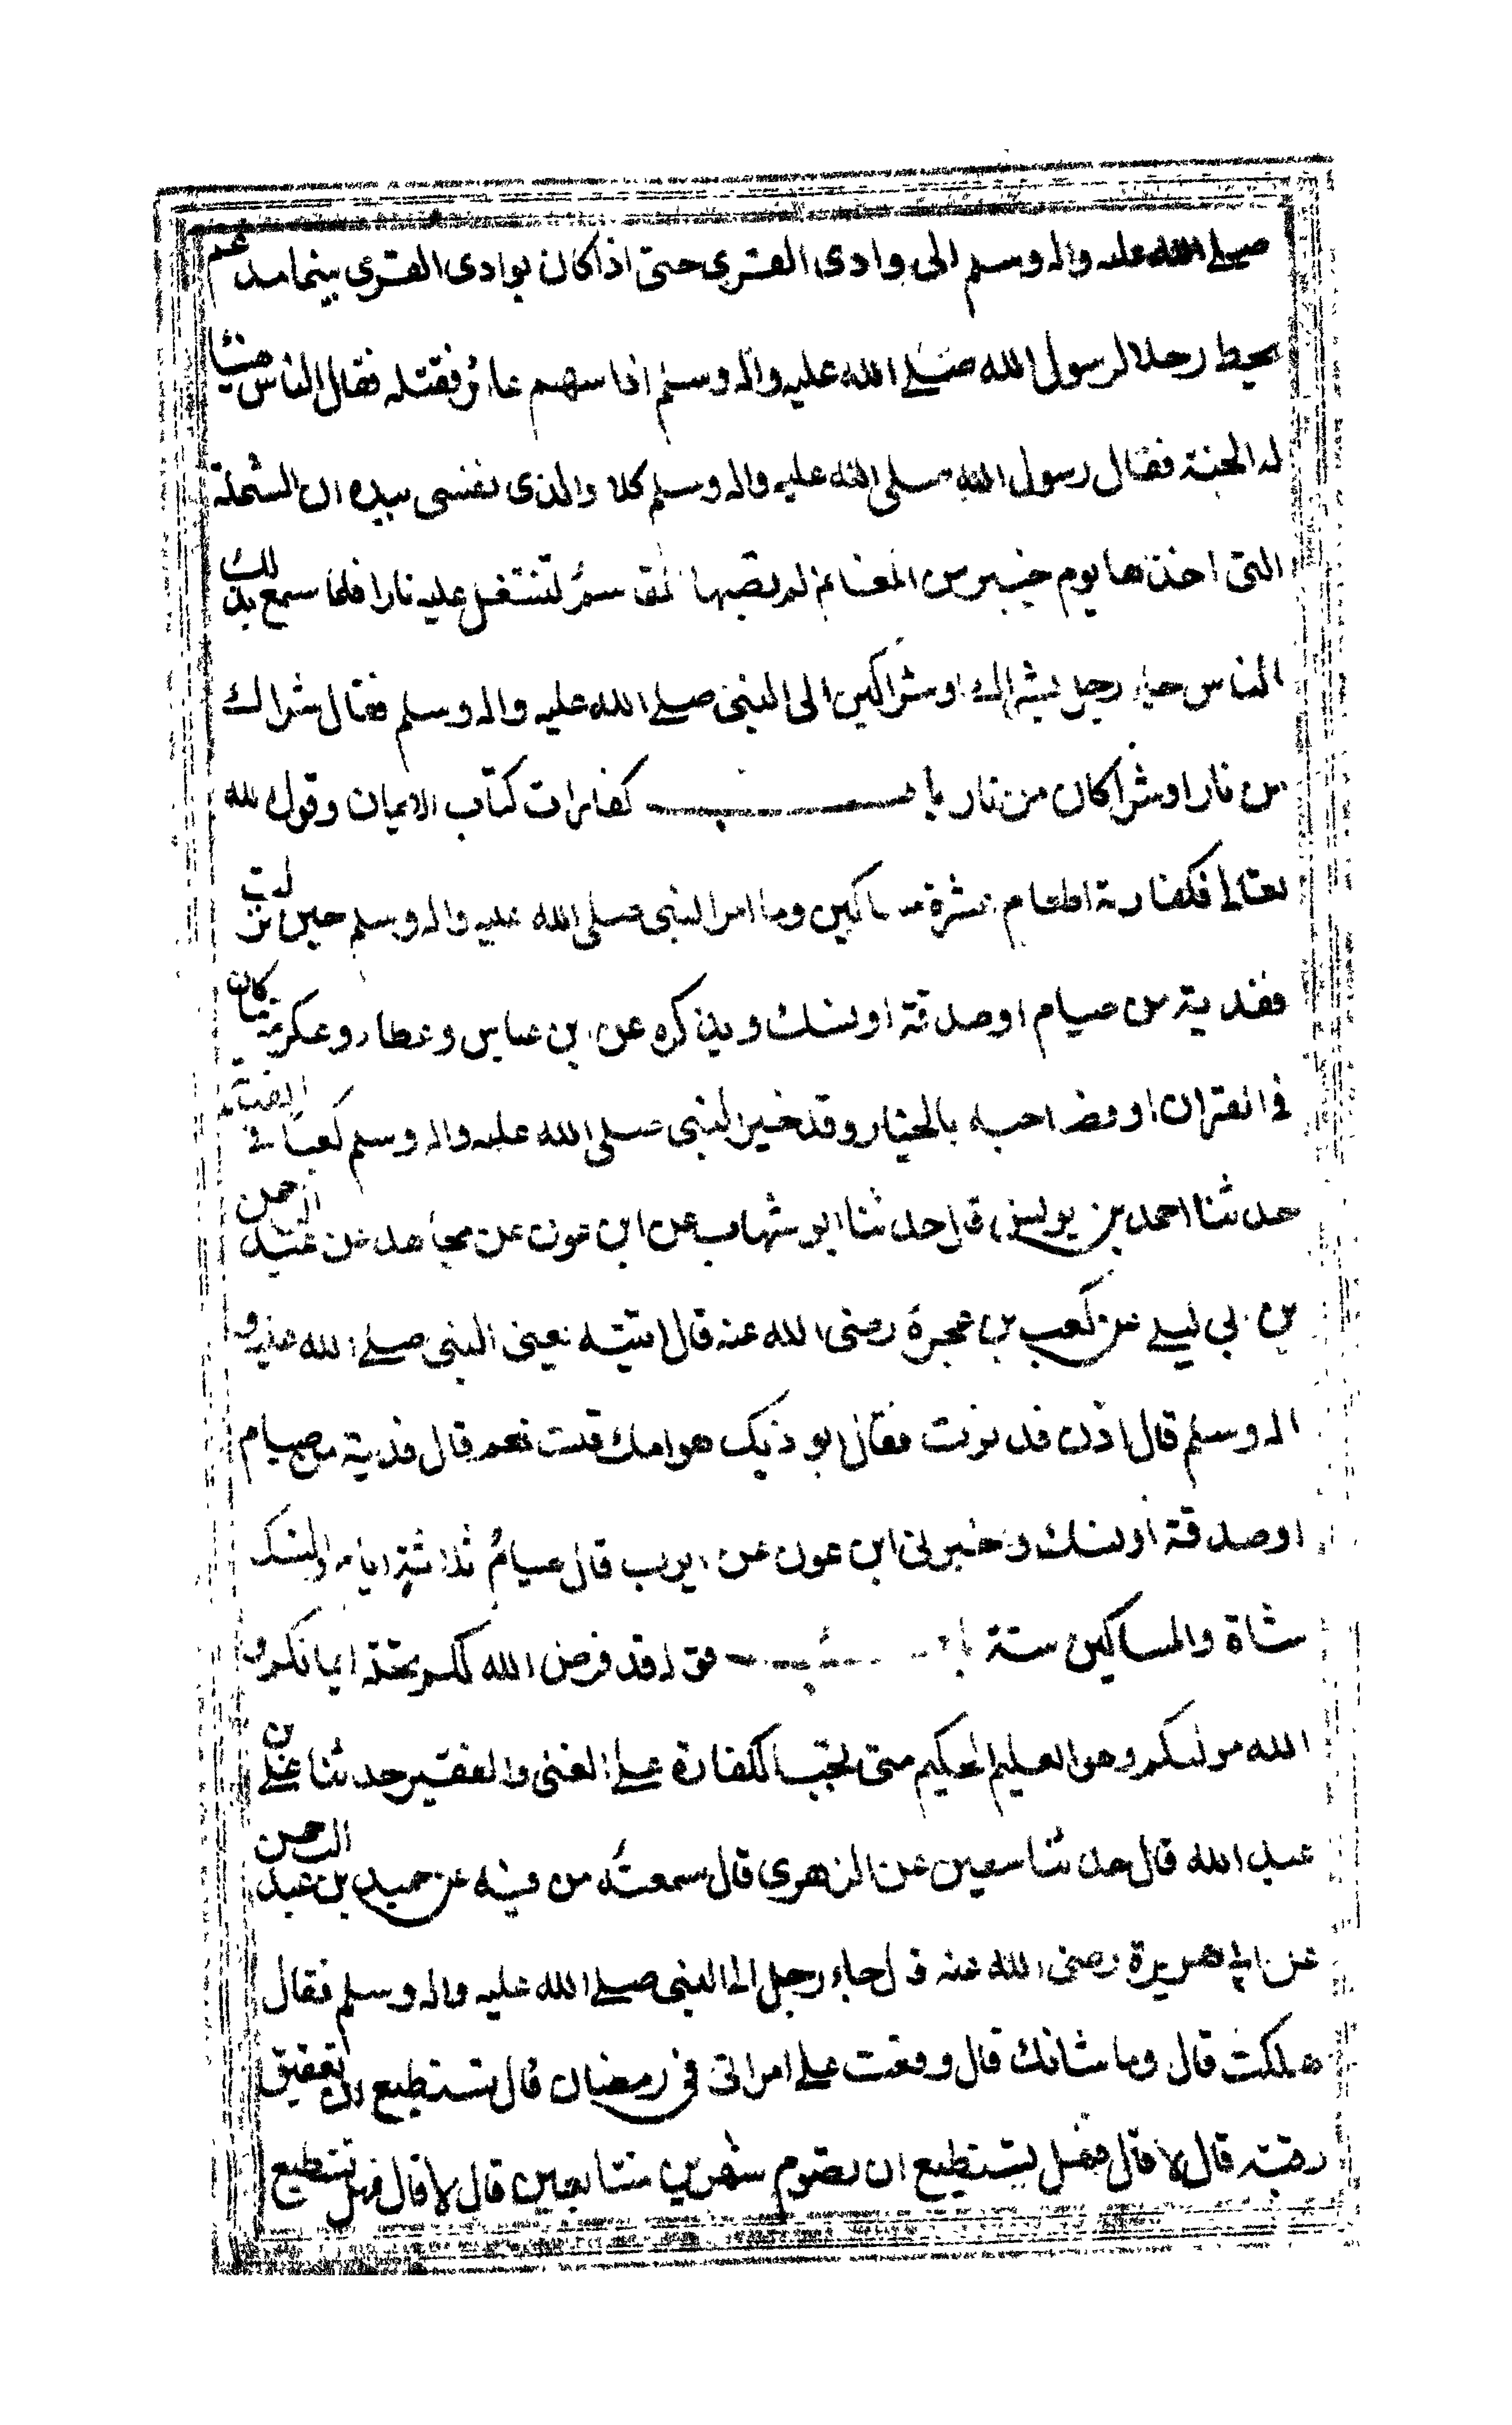 صلى الله عليه واله وسلم الى وادى القرى حتى اذا كان بوادى القرى بينما مدعم
يحط رحلا لرسول الله صلى الله عليه واله وسلم اذا سهم عائر فقتله فقال الناس هنيئا
له الجنة فقال رسول الله صلى الله عليه واله وسلم كلا والذى نفسى بيده ان الشملة
التى اخذها يوم خيبر من المغانم لم تصبها لتشتعل عليه نارا فلما سمع بذلك
الناس جاء رجل بشراك او شراكين الى النبى صلى الله عليه واله وسلم فقال شراك
من نار او شراكان من نار باب كفارات كتاب الايمان وقول الله
تعالى فكفارته اطعام عشرة مساكين وما امر النبى صلى الله عليه واله وسلم حين نزلت
ففدية من صيام او صدقة او نسك ويذكره عن ابن عباس وعطاء وعكرمة ما كان
فى القران او او فصاحبه بالخيار وقد خير النبى صلى الله عليه واله وسلم كعبا فى الفدية
حدثنا احمد بن يونس قال حدثنا ابو شهاب عن ابن عون عن مجاهد عن عبد الرحمن
بن ابى ليلى عن كعب بن عجرة رضى الله عنه قال اتيته يعنى النبى صلى الله عليه و
اله وسلم قال ادن فدنوت فقال ايوذيك هوامك قلت نعم قال فدية من صيام
او صدقة او نسك واخبرنى ابن عون عن ايوب قال صيام ثلاثة ايام والنسك
شاة والمساكين ستة باب قوله قد فرض الله لكم تحلة ايمانكم و
الله مولىكم وهو العليم الحكيم متى تجب الكفارة على الغنى والفقير حدثنا على بن
عبد الله قال حدثنا سفين عن الزهرى قال سمعته من فيه عن حميد بن عبد الرحمن
عن ابى هريرة رضى الله عنه قال جاء رجل الى النبى صلى الله عليه واله وسلم فقال
هلكت قال وما شانك قال وقعت على امراتى فى رمضان قال تستطيع ان تعتق
رقبة قال لا قال فهل تستطيع ان تصوم شهرين متتابعين قال لا قال فهل تستطيع